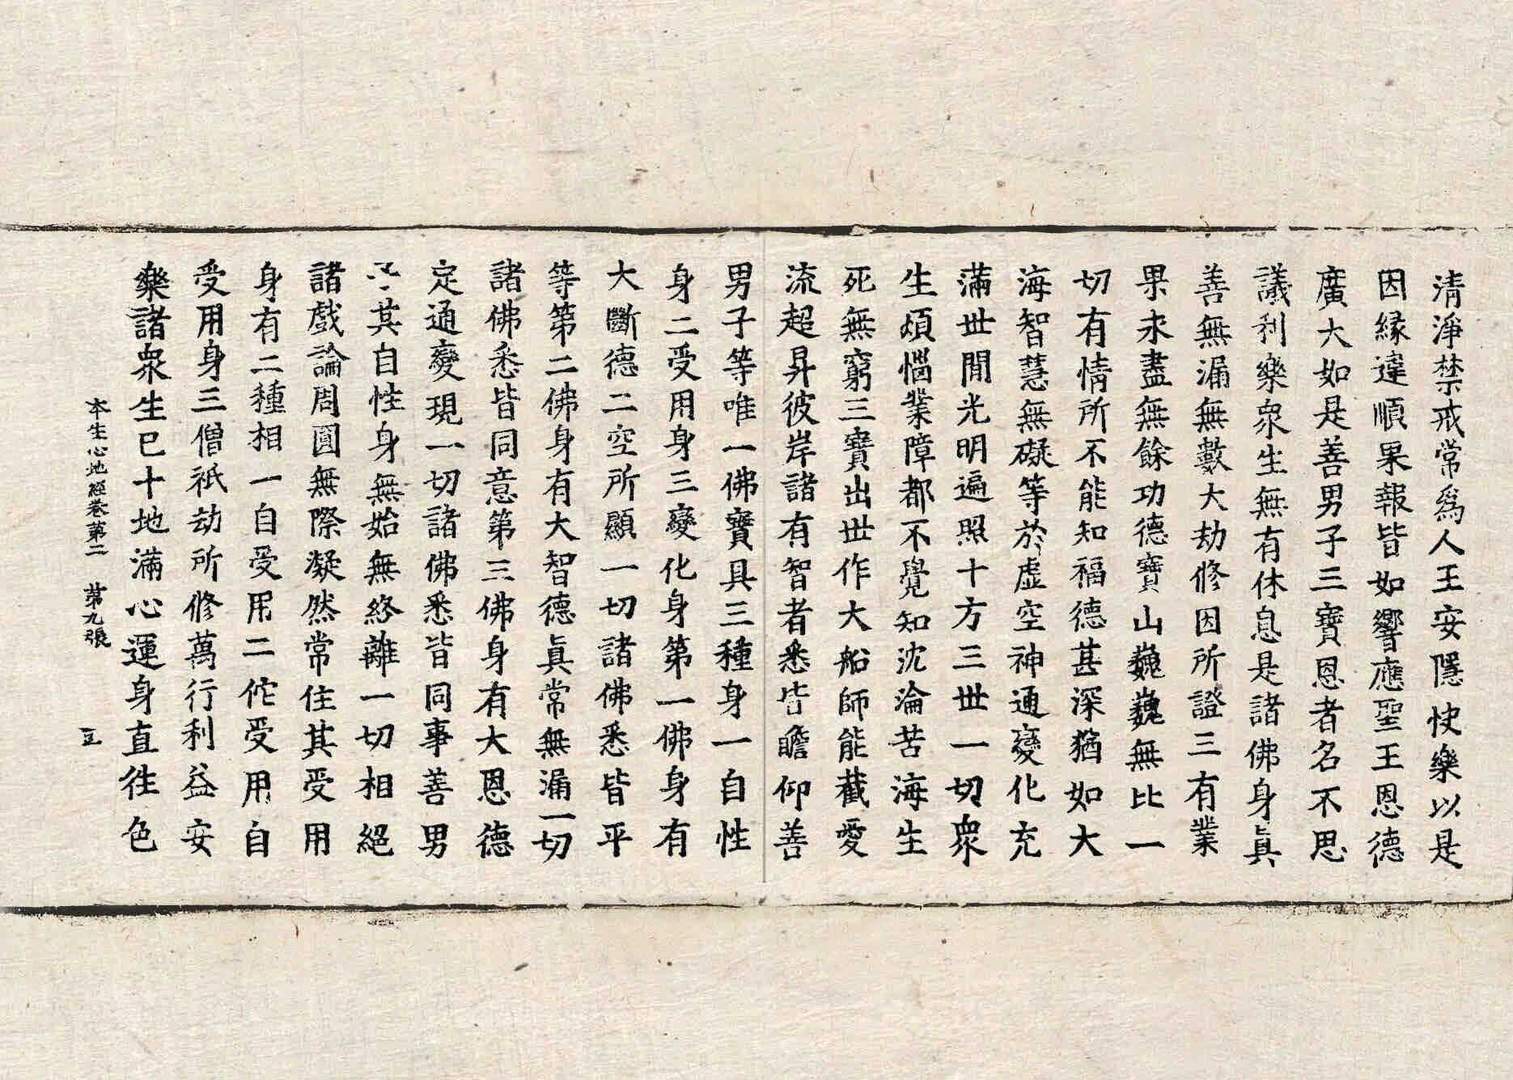 清淨禁戒常爲人王安隱快樂以是
因緣違順果報皆如響應聖王恩德
廣大如是善男子三寶恩者名不思
議利樂衆生無有休息是諸佛身眞
善無漏無數大劫修因所證三有業
果永盡無餘功德寶山巍巍無比一
切有情所不能知福德甚深猶如大
海智慧無礙等於虛空神通變化充
滿世間光明遍照十方三世一切衆
生煩惱業障都不覺知沈淪苦海生
死無窮三寶出世作大船師能截愛
流超昇彼岸諸有智者悉皆瞻仰善
男子等唯一佛寶具三種身一自性
身二受用身三變化身第一佛身有
大斷德二空所顯一切諸佛悉皆平
等第二佛身有大智德眞常無漏一切
諸佛悉皆同意第三佛身有大恩德
定通變現一切諸佛悉皆同事善男
子其自性身無始無終離一切相絕
諸戲論周圓無際凝然常住其受用
身有二種相一自受用二佗受用自
受用身三僧祇劫所修萬行利益安
樂諸衆生已十地滿心運身直往色
本生心地經卷第二 第九張 正